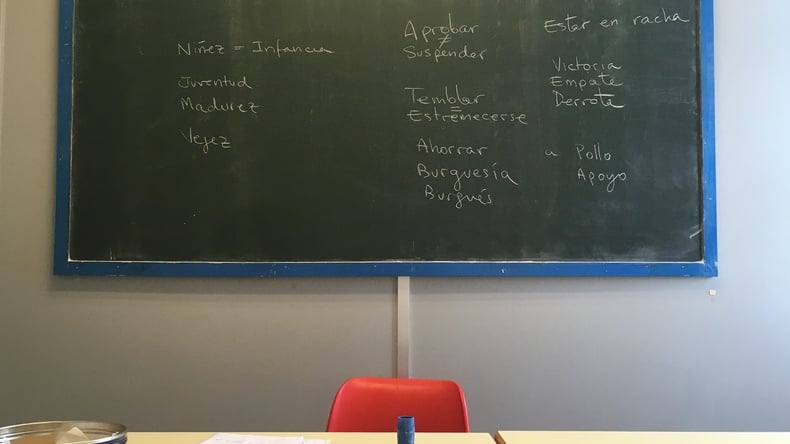 Niñez = Infancia
Juventud
Madurez
Vejez
Aprobar
≠
Suspender
Temblar
=
Estremecerse
Ahorrar
Burguesía
Burgués
Estar en racha
Victoria
Empate
Derrota
a Pollo
Apoyo